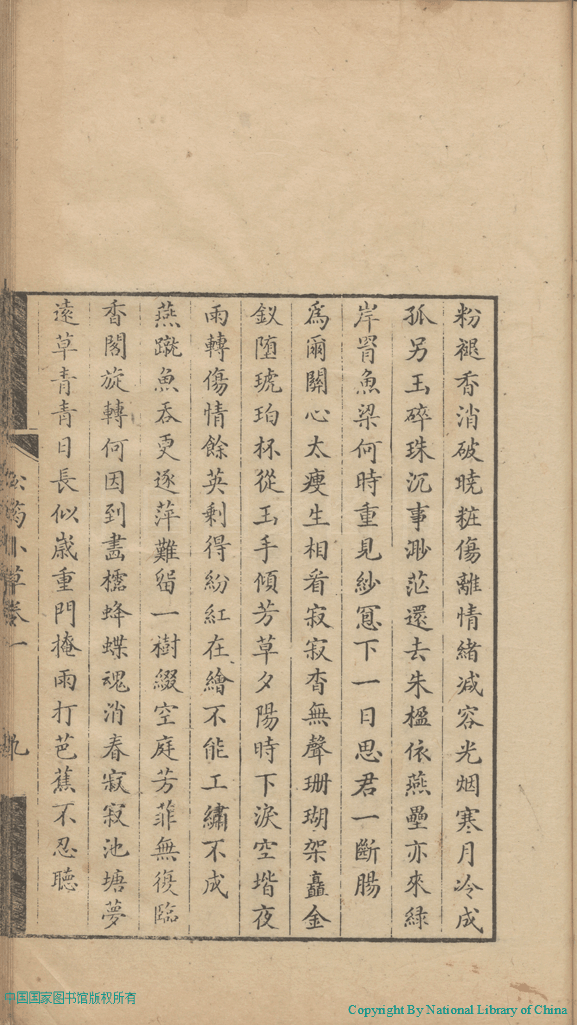 粉褪香消破曉粧傷離情緒减容光烟寒月冷成
孤另玉碎珠沉事渺茫還去朱楹依燕壘亦來緑
岸罥魚梁何時重見紗窻下一日思君一斷腸
爲爾關心太瘦生相看寂寂杳無聲珊瑚架矗金
釵墮琥珀杯從玉手傾芳草夕陽時下淚空堦夜
雨轉傷情餘英剩得紛紅在繪不能工繡不成
燕蹴魚吞更逐萍難留一樹綴空庭芳菲無復臨
香閣旋轉何因到畵櫺蜂蝶魂消春寂寂池塘夢
遠草青青日長似歲重門掩雨打芭蕉不忍聽
小草卷一
九
中国国家图书馆版权所有
Copyright By National Library of China